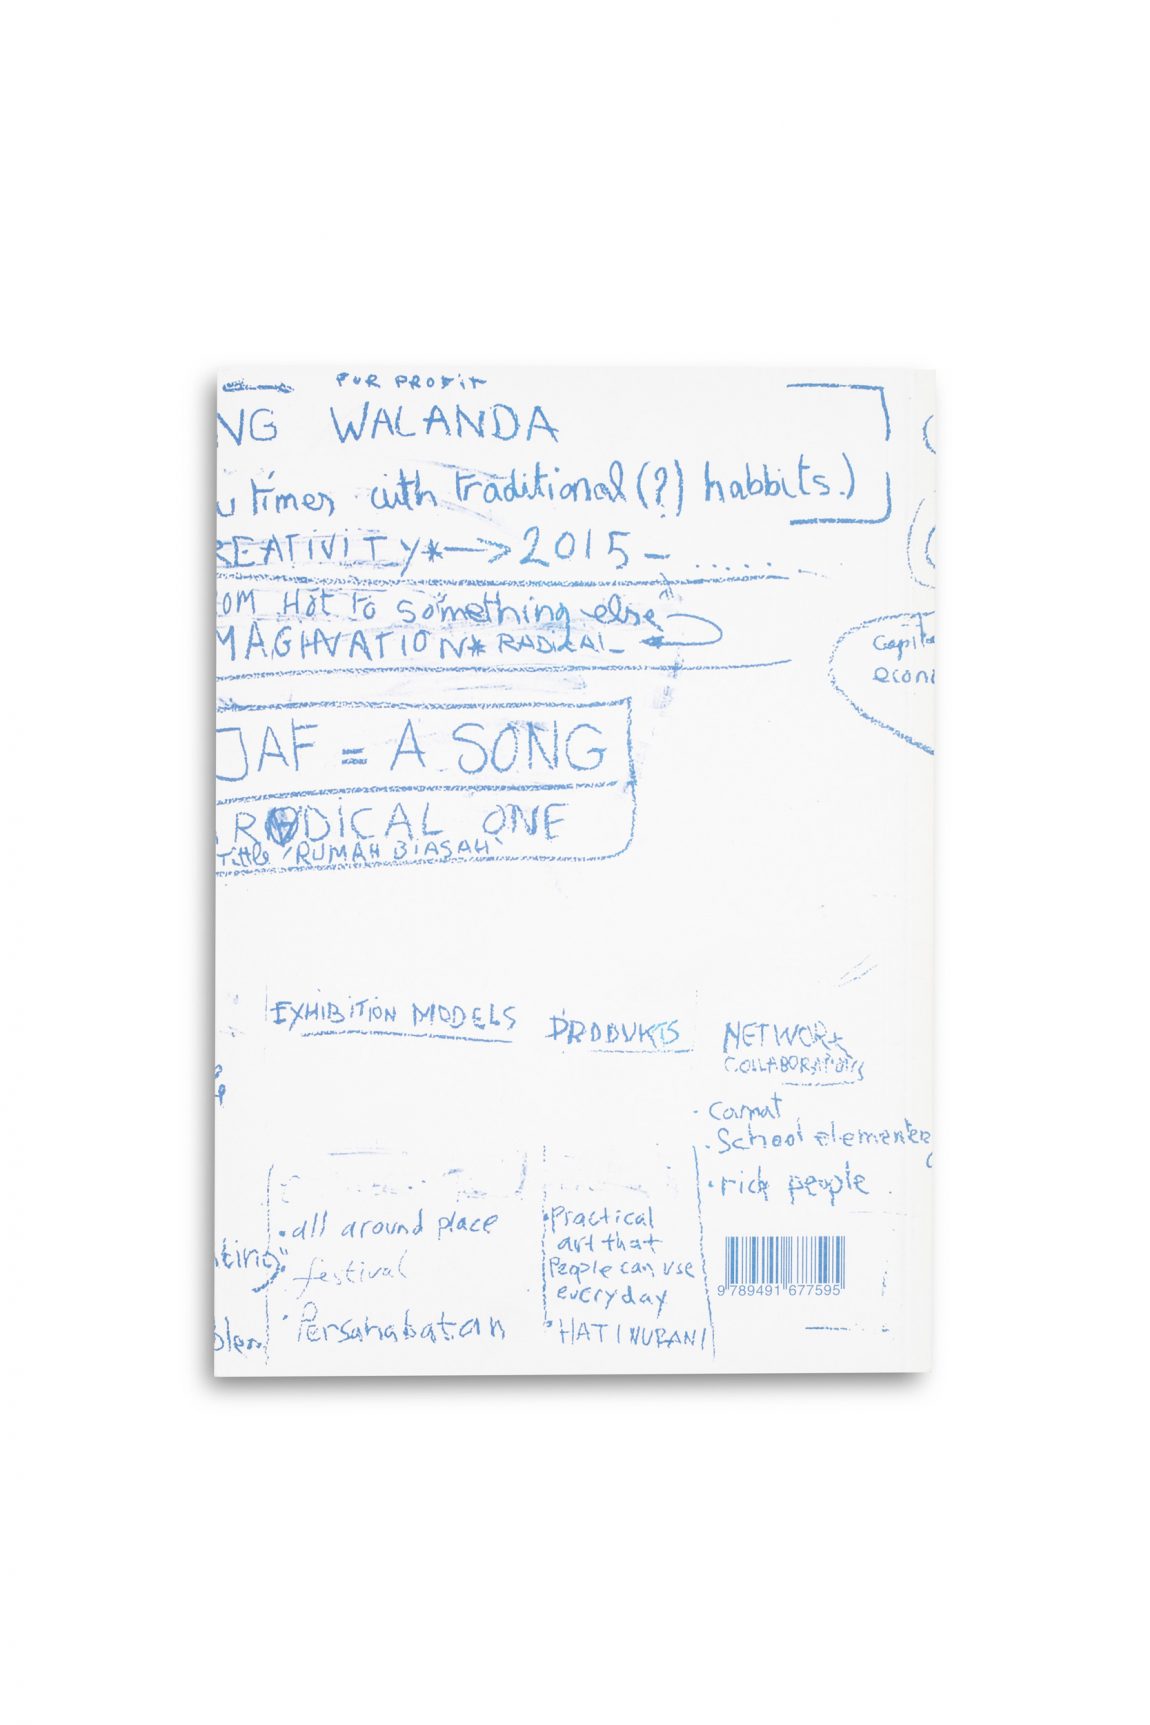 FOR PROFIT
NG WALANDA
u times with traditional (?) habbits.)
REATIVITY*—>2015 – .......
OM Hot to something else
MAGINATION* RADICAL
Capita
econo
JAF = A SONG
A RADICAL ONE
Tittle 'RUMAH BIASAH'
EXHIBITION MODELS
PRODUKTS
NETWORK
COLLABORATORS
· Camat
· School elementery
· rich people
· all around place
festival
· Persahabatan
· Practical
art that
People can use
everyday
· HATINURANI
ating"
blem
9 789491 677595